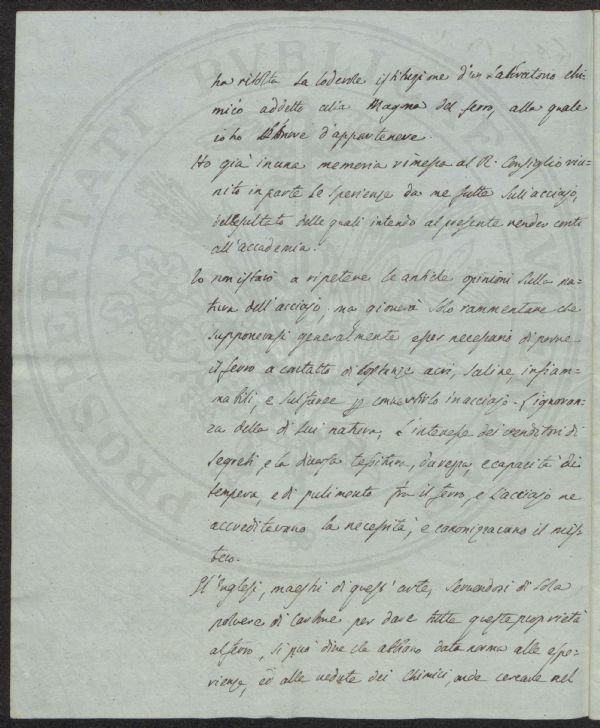 ha risolta la lodevole istituzione d'un Laboratorio chi-
mico addetto alla Magona del ferro, alla quale
io ho l'onore d'appartenere.
Ho già in una memoria rimessa al R. Consiglio riu-
nite in parte le sperienze da me fatte sull'acciajo,
del resultato delle quali intendo al presente render conto
all'accademia.
Io non istarò a ripetere le antiche opinioni sulla na-
tura dell'acciajo, ma gioverà solo rammentare che
supponevasi generalmente esser necessario di porre
il ferro a contatto di sostanze acri, saline, infiam-
mabili, e sulfuree per convertirlo in acciajo. L'ignoran-
za della di lui natura, l'interesse dei venditori di
segreti, e la diversa tessitura, durezza, e capacità di
tempera, e di pulimento fra il ferro, e l'acciajo ne
accreditavano la necessità, e canonizzavano il mis-
tero.
Gl'Inglesi, maestri di quest'arte, servendosi di sola
polvere di Carbone per dare tutte queste proprietà
al ferro, si può dire che abbiano data norma alle espe-
rienze, ed alle vedute dei Chimici, onde cercare nel
PROSPERITATI PUBLICAE